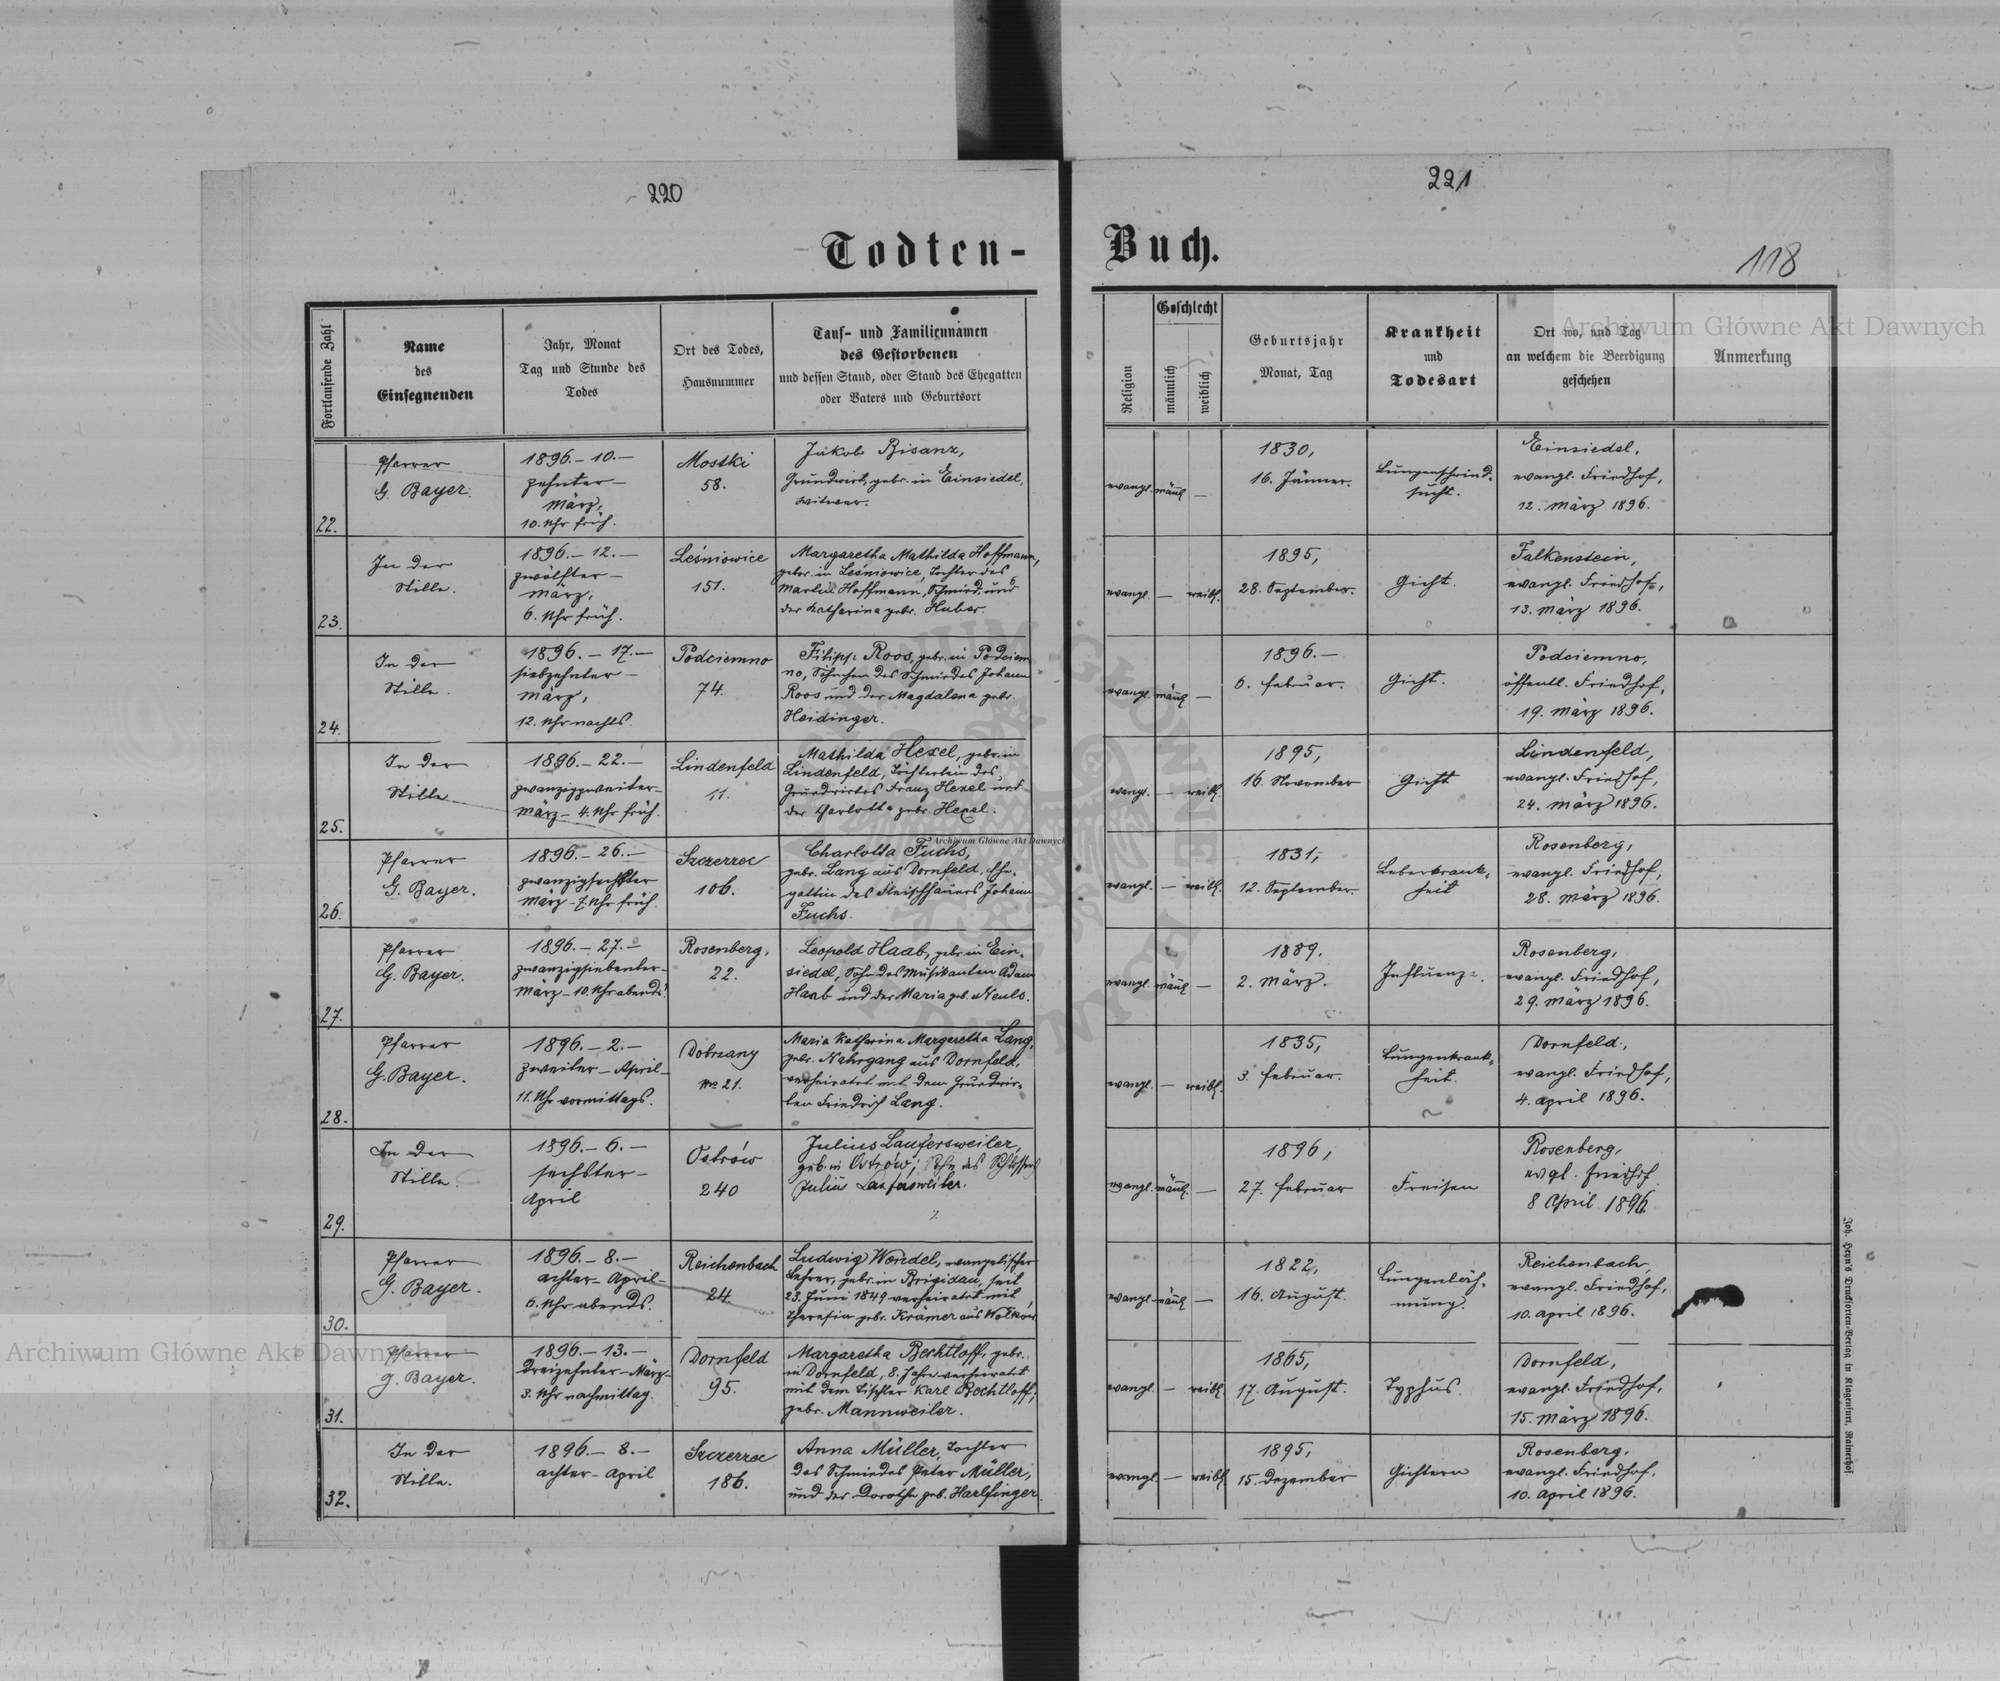 220
221
118
Todten-
Buch.
Fortlaufende Zahl
Name
des
Einsegnenden
Jahr, Monat
Tag und Stunde des
Todes
Ort des Todes,
Hausnummer
Tauf- und Familiennamen
des Gestorbenen
und dessen Stand, oder Stand des Ehegatten
oder Vaters und Geburtsort
Religion
Geschlecht
männlich
weiblich
Geburtsjahr
Monat, Tag
Krankheit
und
Todesart
Ort wo, und Tag
an welchem die Beerdigung
geschehen
Anmerkung
22.
Pfarrer
G. Bayer.
1896.- 10.-
zehnter-
März,
10. Uhr früh.
Mostki
58.
Jakob Bisanz,
Grundwirt, gebr. in Einsiedel,
Witwer.
evangl.
männl
—
1830,
16. Jänner.
Lungenschwind-
sucht.
Einsiedel,
evangl. Friedhof,
12. März 1896.
23.
In der
Stille.
1896.- 12.-
zwölfter-
März,
6. Uhr früh.
Leśniowice
151.
Margaretha Mathilda Hoffmann,
gebr. in Leśniowice, Tochter des
Martin Hoffmann, Schmied, und
der Katharina gebr. Huber.
evangl.
—
weibl.
1895,
28. September.
Gicht.
Falkenstein,
evangl. Friedhof,
13. März 1896.
24.
In der
Stille.
1896.- 17.-
siebzehnter-
März,
12. Uhr nachts.
Podciemno
74.
Filipp Roos, gebr. in Podciem
no, Söhnchen des Schmiedes Johann
Roos und der Magdalena gebr.
Heidinger.
evangl.
männl
—
1896.-
6. Februar.
Gicht.
Podciemno,
öffentl. Friedhof,
19. März 1896.
25.
In der
Stille.
1896.- 22.-
zwanzigzweiter-
März- 4. Uhr früh.
Lindenfeld
11.
Mathilda Hexel, gebr. in
Lindenfeld, Töchterlein des
Grundwirtes Franz Hexel und
der Charlotta gebr. Hexel.
evangl.
—
weibl.
1895,
16. November
Gicht
Lindenfeld,
evangl. Friedhof,
24. März 1896.
26.
Pfarrer
G. Bayer.
1896.- 26.-
zwanzigsechster
März- 7. Uhr früh.
Szczerzec
106.
Charlotta Fuchs,
gebr. Lang aus Dornfeld, Ehe-
gattin des Fleischhauers Johann
Fuchs.
evangl.
—
weibl.
1831,
12. September.
Leberkrank-
heit
Rosenberg,
evangl. Friedhof,
28. März 1896.
27.
Pfarrer
G. Bayer.
1896.- 27.-
zwanzigsiebenter-
März- 10. Uhr abends.
Rosenberg,
22.
Leopold Haab, gebr. in Ein-
siedel, Sohn des Musikanten Adam
Haab und der Maria geb. Neuls.
evangl.
männl
—
1889.
2. März.
Influenza.
Rosenberg,
evangl. Friedhof,
29. März 1896.
28.
Pfarrer
G. Bayer.
1896.- 2.-
zweiter- April-
11. Uhr vormittags.
Dobrzany
No 21.
Maria Katharina Margaretha Lang,
gebr. Nahrgang aus Dornfeld,
verheiratet mit dem Grundwir-
ten Friedrich Lang.
evangl.
—
weibl.
1835,
3. Februar.
Lungenkrank-
heit.
Dornfeld,
evangl. Friedhof,
4. April 1896.
29.
In der
Stille.
1896.- 6.-
sechster-
April
Ostrów
240
Julius Laufersweiler,
geb. in Ostrów; Sohn des Schlossers
Julius Laufersweiler.
evangl.
männl.
—
1896,
27. Februar
Freisen
Rosenberg,
evgl. Friedhof
8 April 1896.
30.
Pfarrer
G. Bayer.
1896.- 8.-
achter- April-
6. Uhr abends.
Reichenbach
24.
Ludwig Wendel, evangelischer
Lehrer, gebr. in Brigidau, seit
23. Juni 1849 verheiratet mit
Theresia gebr. Krämer aus Wolków
evangl.
männl
—
1822,
16. August.
Lungenläh-
mung.
Reichenbach,
evangl. Friedhof,
10. April 1896.
31.
Pfarrer
G. Bayer.
1896.- 13.-
Dreizehnter- März-
3. Uhr nachmittag.
Dornfeld
95.
Margaretha Bechtloff, gebr.
in Dornfeld, 8. Jahr verheiratet
mit dem Tischler Karl Bechtloff,
gebr. Mannweiler.
evangl.
—
weibl.
1865,
17. August.
Typhus.
Dornfeld,
evangl. Friedhof,
15. März 1896.
32.
In der
Stille.
1896.- 8.-
achter- April
Szczerzec
186.
Anna Müller, Tochter
des Schmiedes Peter Müller,
und der Dorothe geb. Harlfinger.
evangl.
—
weibl.
1895,
15. Dezember
Gichtern
Rosenberg,
evangl. Friedhof,
10. April 1896.
Joh. Heyn's Drucksorten-Verlag in Klagenfurt, Rainerhof
Archiwum Główne Akt Dawnych
Archiwum Główne Akt Dawnych
Archiwum Główne Akt Dawnych